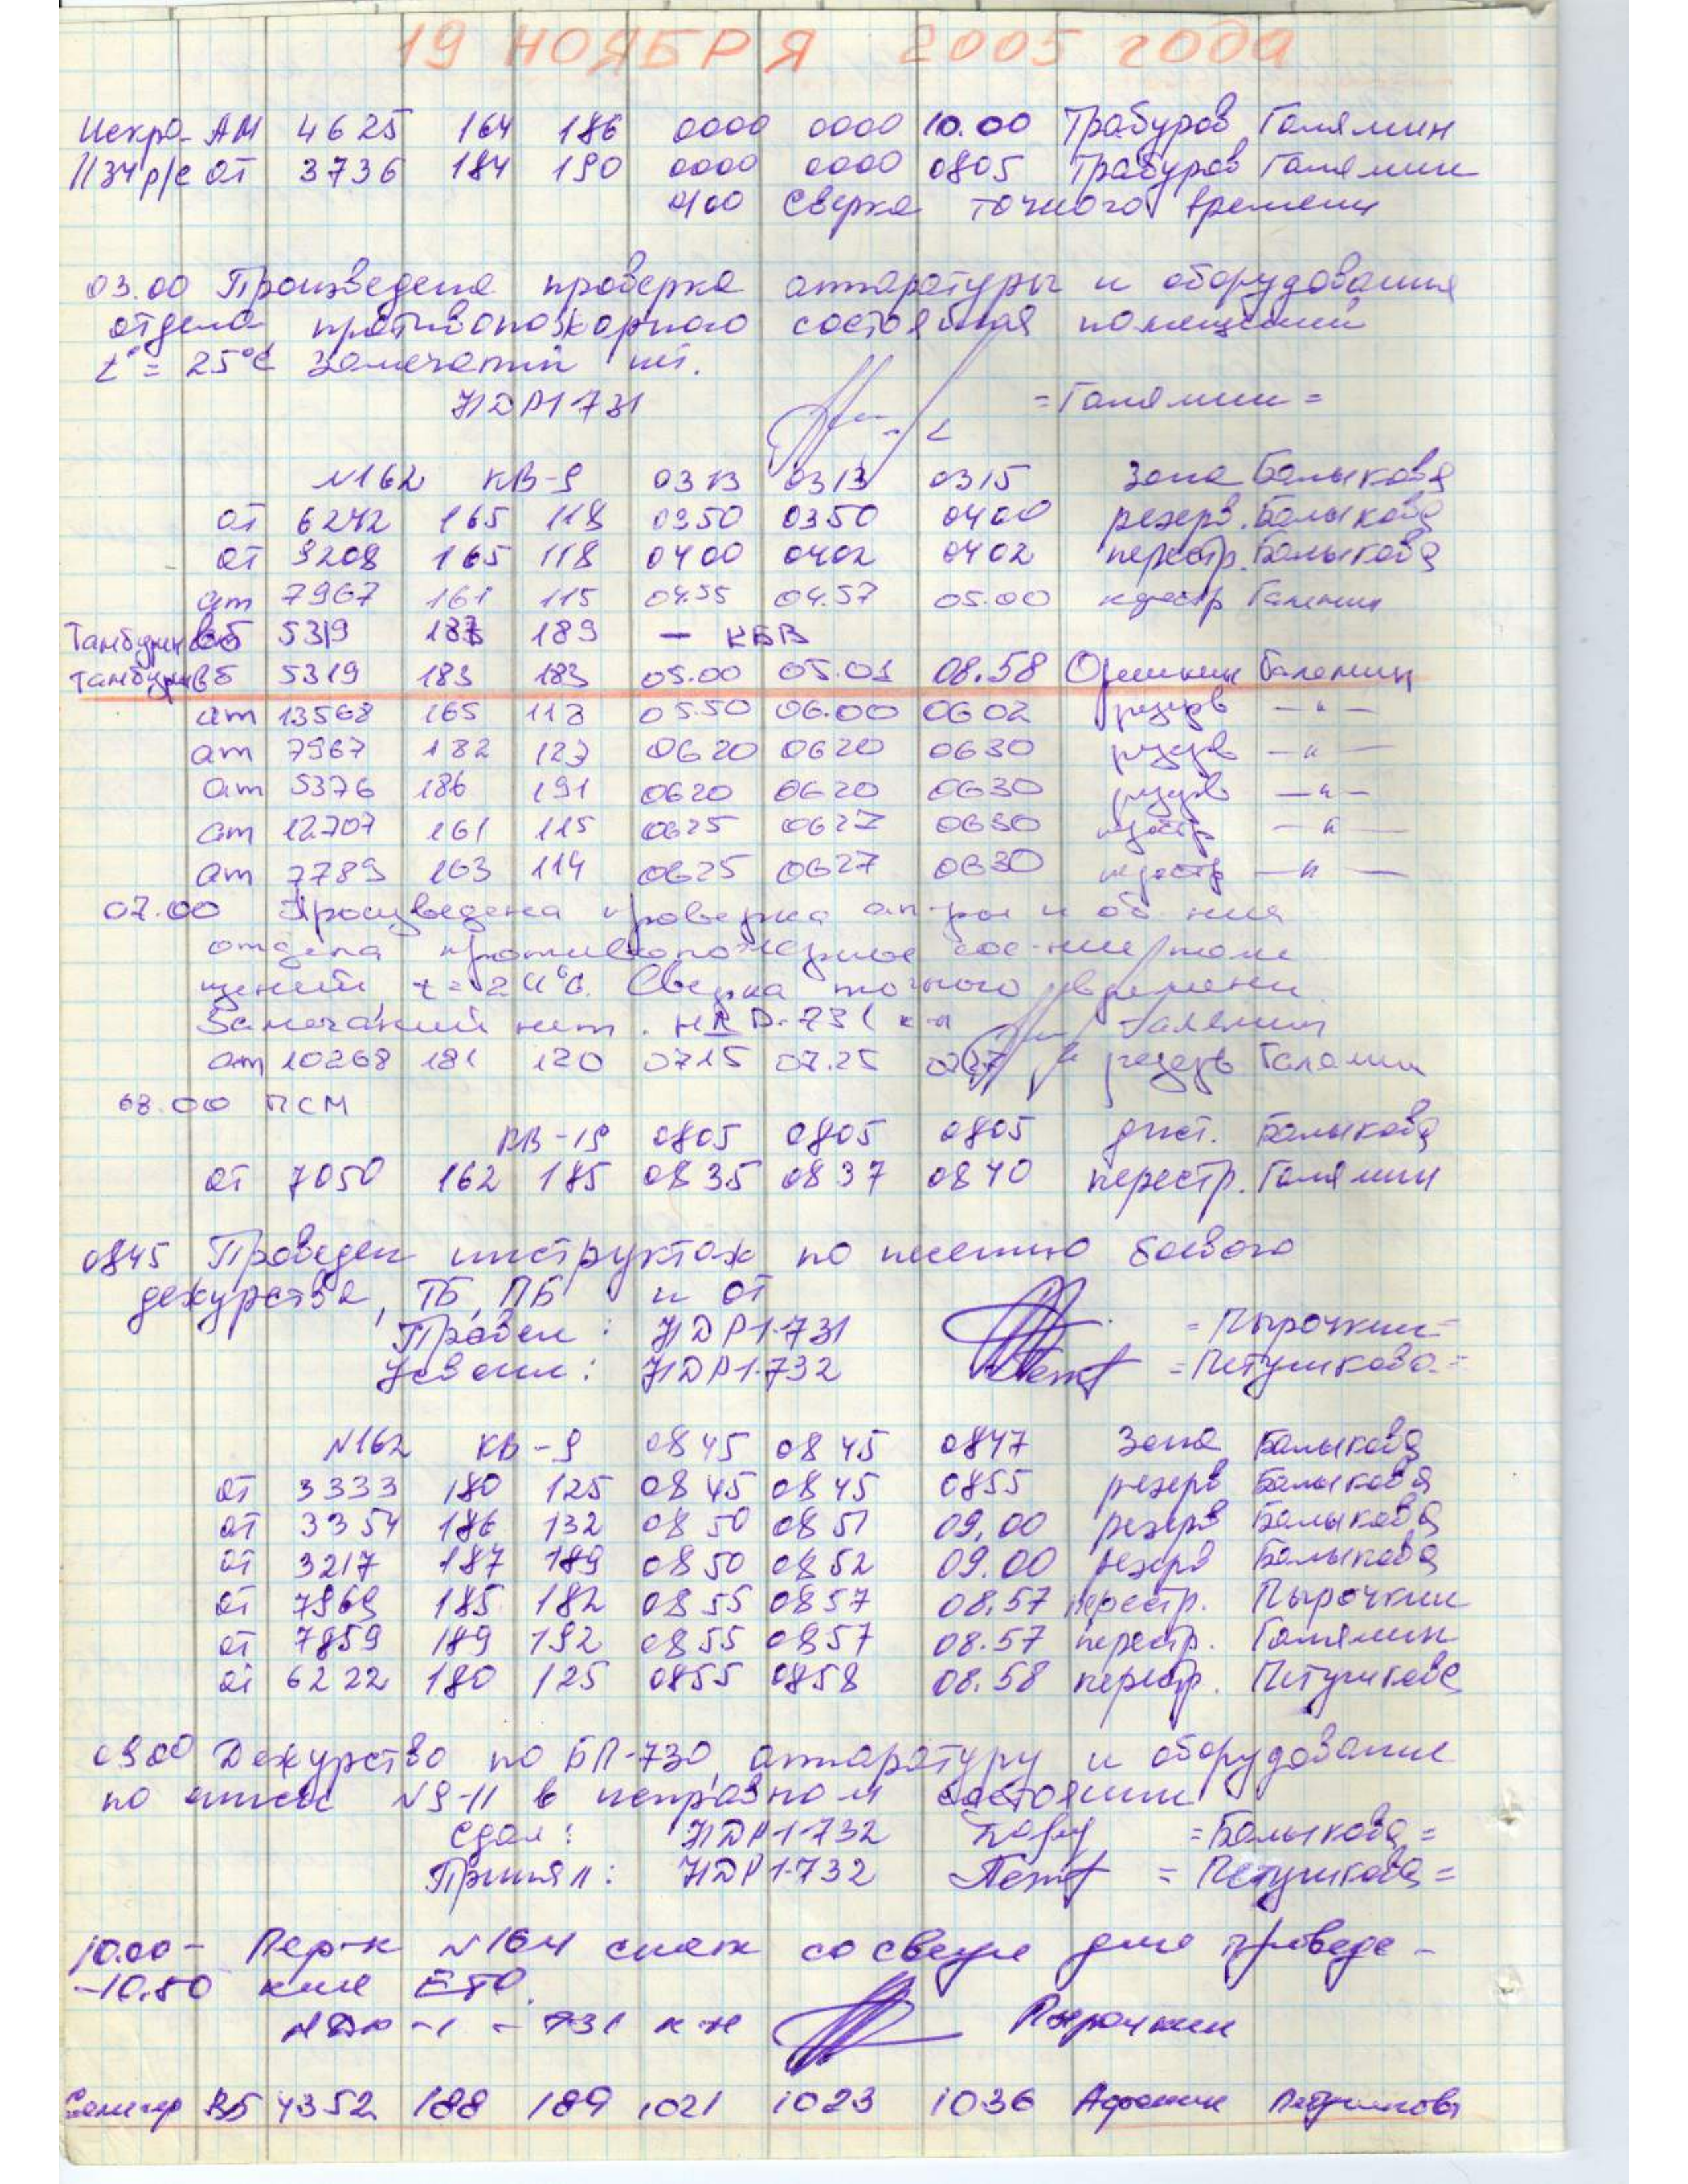 19 НОЯБРЯ 2005 года
Искра- АМ 4625 164 186 0000 0000 10.00 Трабуров Галямин
1134 р/с от 3736 184 190 0000 0000 0805 Трабуров Галямин
0100 Сверка точного времени
03.00 Произведена проверка аппаратуры и оборудования
отдела противопожарного состояния помещений
t° = 25°С Замечаний нет.
НДР1 731 =Галямин=
N162 КВ-9 0313 0313 0315 зона Балыкова
от 6242 165 118 0350 0350 0400 резерв. Балыкова
от 9208 165 118 0400 0402 0402 перестр. Балыкова
от 7967 161 115 04.55 04.57 05.00 Галямин
вб 5319 189 — КБВ
вб 5319 183 183 05.00 05.01 08.58 Орешкин Галямин
от 13568 165 118 05.50 06.00 0602 резерв —"—
от 7967 182 123 0620 0620 0630 резерв —"—
от 5376 186 191 0620 0620 0630 резерв —"—
от 12707 161 115 0625 0627 0630 перестр —"—
от 7789 163 114 0625 0627 0630 перестр —"—
07.00 Произведена проверка ап-ры и об-ния
отдела противопожарное сос-ние поме
щений t=24°С. Сверка точного времени.
Замечаний нет. к-н Галямин
от 10268 181 120 0715 07.25 0727 резерв Галямин
08.00 ПСМ
КВ-19 0805 0805 0805 дист. Балыкова
от 7050 162 185 0835 0837 0840 перестр. Галямин
0845 Проведен инструктаж по несению боевого
дежурства, ТБ, ПБ и от
Провел: НДР1-731 =Пырочкин=
Усвоил: НДР1-732 =Петушкова=
N162 КВ-9 0845 0845 0847 зона Балыкова
от 3333 180 125 0845 0845 0855 резерв Балыкова
от 3354 186 132 0850 0851 09.00 резерв Балыкова
от 3217 187 189 0850 0852 09.00 резерв Балыкова
от 7969 185 182 0855 0857 08.57 перестр. Пырочкин
от 7859 189 192 0855 0857 08.57 перестр. Галямин
от 6222 180 125 0855 0858 08.58 перестр. Петушкова
0900 Дежурство по БП-730, аппаратуру и оборудование
по описи N9-11 в исправном состоянии
Сдал: НДР1-732 =Балыкова=
Принял: НДР1-732 =Петушкова=
10.00- Пер-к N164 снят со связи для проведе-
-10.50 ния ЕТО.
НДР-1-731 к-н Пырочкин
Селигер ВБ 4352 188 189 1021 1023 1036 Афонин Петушкова